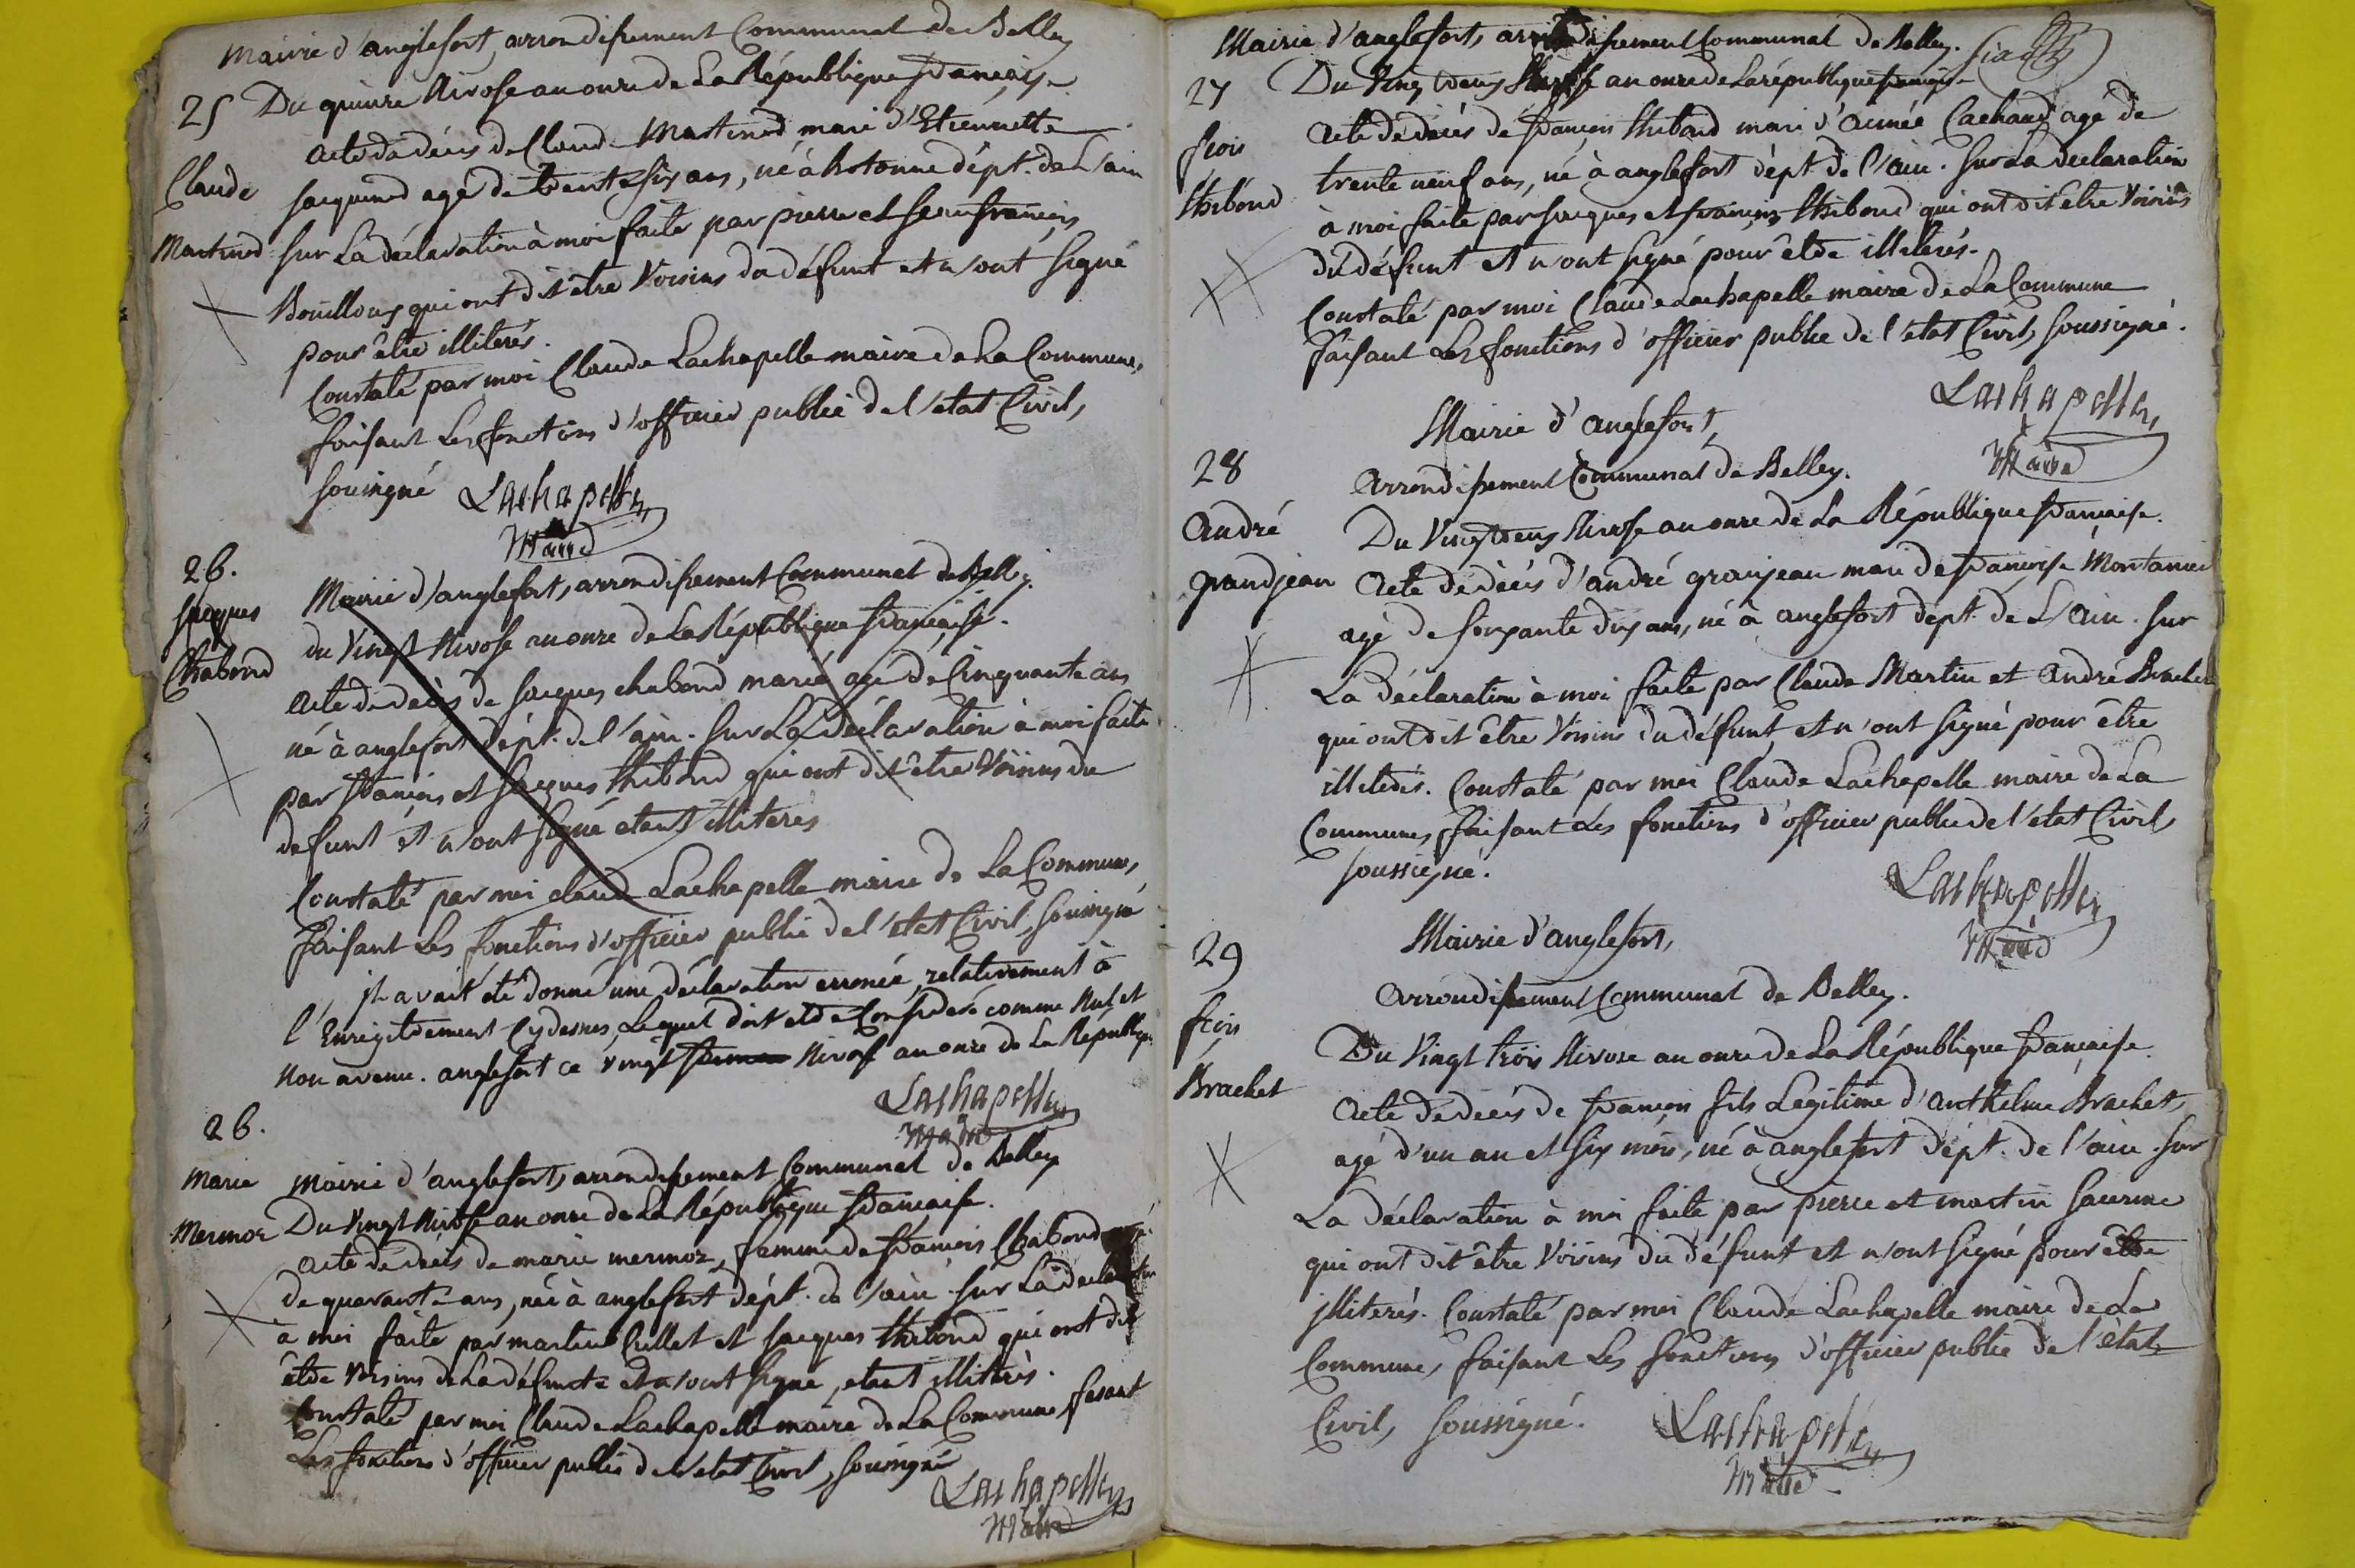 Mairie d'anglefort, arrondissement Communal de Belley
25 Du quinze Nivose an onze de La République française
acte de décès de Claude Martinod mari d'Etiennette
Claude Jacquinod agé de trente six ans, né à hotonne dépt. de L'ain
Martinod Sur La déclaration à moi faite par pierre et Jean françois
Bouillons qui ont dit être Voisins du défunt et n'ont signé
pour être illiterés.
Constaté par moi Claude Lachapelle maire de La Commune,
faisant Les fonctions d'officier public de l'etat Civil,
soussigné Lachapelle
Maire
26.
Jacques Mairie d'anglefort, arrondissement Communal de Belley.
Chabond du Vingt Nivose an onze de La République française.
acte de décès de Jacques chabond marié agé de Cinquante ans
né à anglefort dépt. de l'ain. Sur La déclaration à moi faite
par françois et Jacques thibond qui ont dit être Voisins du
defunt et n'ont signé etant illiterés
Constaté par moi claude Lachapelle maire de La Commune,
faisant Les fonctions d'officier public de l'etat Civil, soussigné
il avait été donné une déclaration erronée, relativement à
l'Enregitrement Cy dessus, Lequel doit etre Considéré comme Nul et
Non avenu. anglefort ce vingt Nivose an onze de La République
Lachapelle
Maire
26.
Marie Mairie d'anglefort, arrondissement Communal de Belley
Mermoz Du Vingt Nivose an onze de La République française.
acte de décès de marie mermoz, femme de françois Chabond agé
de quarante ans, née à anglefort dépt. de l'ain. Sur La declaration
à moi faite par martin Cullet et Jacques thibond qui ont dit
être Voisins de La défuncte et n'ont signé, etant illiterés.
Constaté par moi Claude Lachapelle maire de La Commune fesant
Les fonctions d'officier public de l'etat Civil, soussigné
Lachapelle
Maire
Mairie d'anglefort, arrondissement Communal de Belley.
27 Du Vingt deux Nivose an onze de La république française
acte de décès de françois thibond mari d'aimée Cachand agé de
fçois trente neuf ans, né à anglefort dépt. de l'ain. Sur La declaration
thibond à moi faite par Jacques et françois thibond qui ont dit être Voisins
du défunt et n'ont signé pour être illiterés.
Constaté par moi Claude Lachapelle maire de La Commune
faisant Les fonctions d'officier public de l'etat Civil, soussigné.
Lachapelle
Maire
Mairie d'anglefort,
28 arrondissement Communal de Belley.
André Du Vingt deux Nivose an onze de La République française.
grandjean Acte de décès d'andré granjean mari de françoise Montanier
agé de soixante dix ans, né à anglefort dépt. de L'ain. Sur
La déclaration à moi faite par Claude Martin et André Brachet
qui ont dit être Voisins du défunt et n'ont signé pour être
illiterés. Constaté par moi Claude Lachapelle maire de La
Commune, faisant Les fonctions d'officier public de l'etat Civil,
soussigné.
Lachapelle
Maire
Mairie d'anglefort,
29 arrondissement Communal de Belley.
fçois Du Vingt trois Nivose an onze de La République française.
Brachet Acte de décès de françois fils Legitime d'anthelme Brachet,
agé d'un an et six mois, né à anglefort dépt. de l'ain. Sur
La déclaration à moi faite par pierre et martin
qui ont dit être Voisins du défunt et n'ont signé pour être
illiterés. Constaté par moi Claude Lachapelle maire de La
Commune, faisant Les fonctions d'officier public de l'état
Civil, soussigné. Lachapelle
Maire